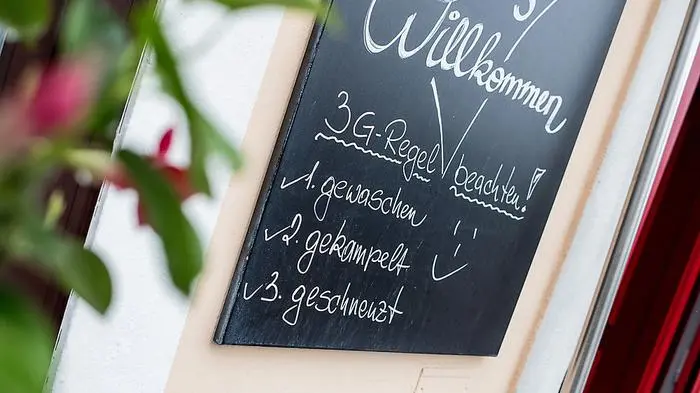 Willkommen
3G-Regel beachten!
1. gewaschen
2. gekampelt
3. geschnenzt